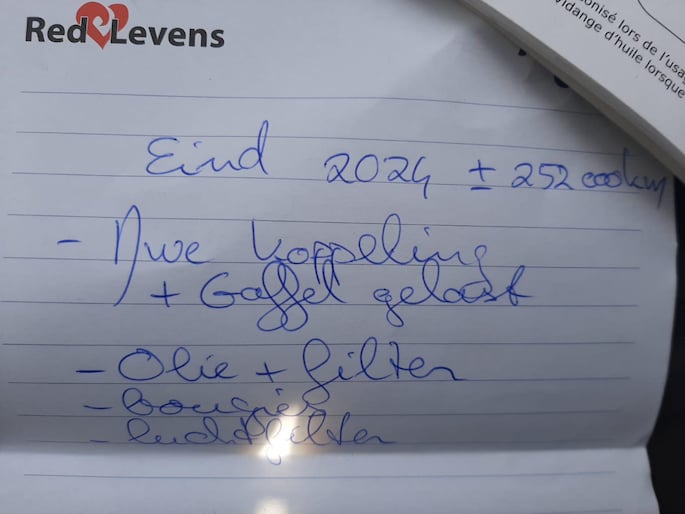 Red Levens
onisé lors de l'usa
vidange d'huile lorsque
Eind 2024 ± 252 000km
- Nwe koppeling
+ Gaffel gelast
- Olie + filter
- bougies
- luchtfilter